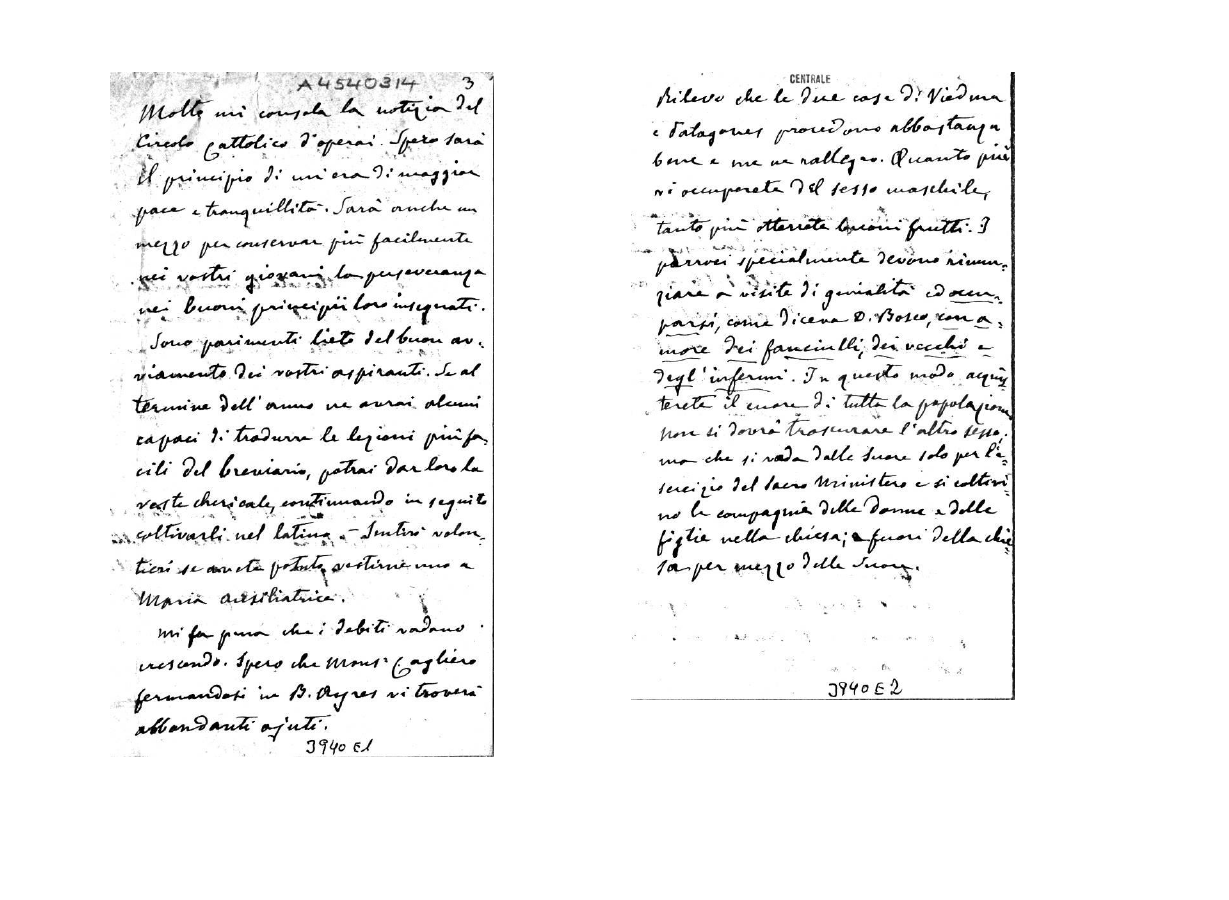 A4540314 3
Molto mi consola la notizia del
Circolo Cattolico d'operai. Spero sarà
il principio di un'era di maggior
pace e tranquillità. Sarà anche un
mezzo per conservar più facilmente
nei vostri giovani la perseveranza
nei buoni principii loro insegnati.
Sono parimenti lieto del buon av-
viamento dei vostri aspiranti. Se al
termine dell'anno ne avrai alcuni
capaci di tradurre le lezioni più fa-
cili del breviario, potrai dar loro la
veste chericale, continuando in seguito
coltivarli nel latino. - Sentirò volon-
tieri se avete potuto vestirne uno a
Maria Ausiliatrice.
Mi fa pena che i debiti vadano
crescendo. Spero che Mons. Cagliero
fermandosi in B. Ayres vi troverà
abbondanti ajuti.
3940 E1
CENTRALE
Rilevo che le due case di Viedma
e Patagones procedono abbastanza
bene e me ne rallegro. Quanto più
vi occuperete del sesso maschile,
tanto più otterrete buoni frutti. I
parroci specialmente devono rinun-
ziare a visite di genialità ed occu-
parsi, come diceva D. Bosco, con a-
more dei fanciulli, dei vecchi e
degl'infermi. In questo modo acquis
terete il cuore di tutta la popolazione
Non si dovrà trascurare l'altro sesso;
ma che si vada dalle Suore solo per l'e-
sercizio del Sacro Ministero e si coltivi-
no le compagnie delle Donne e delle
figlie nella chiesa; e fuori della chie
sa per mezzo delle Suore.
3940 E2